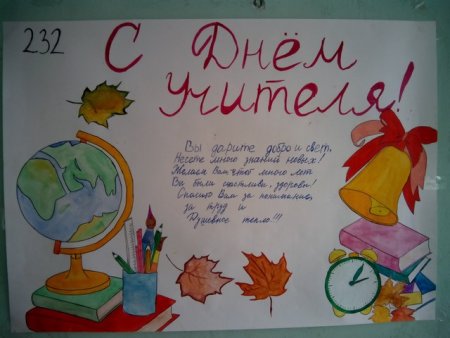 232
С Днём
учителя!
Вы дарите добро и свет.
Несёте много знаний новых!
Желаем Вам много лет
Вы были счастливы, здоровы!
Спасибо Вам за понимание,
за труд и
Душевное тепло!!!